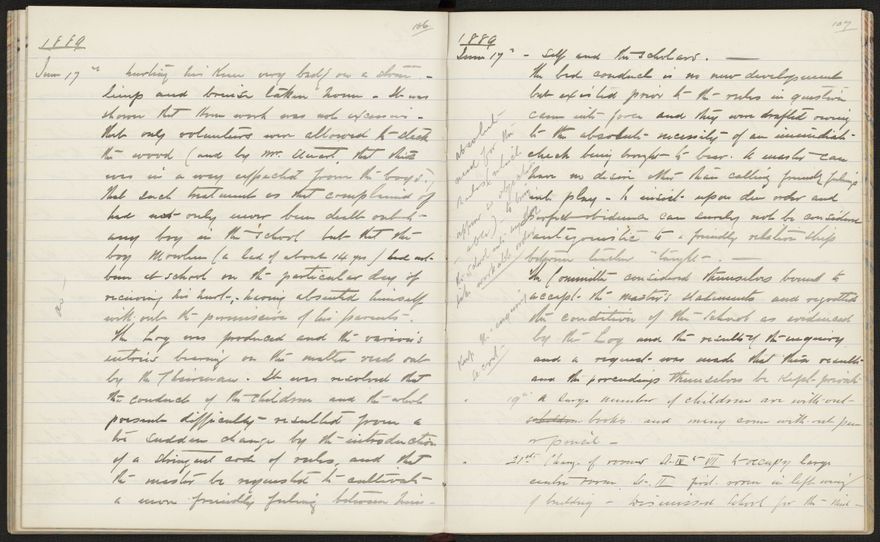 106
1889
June 17th hurting his knee very badly on a stone -
limp and bruise taken home - It was
shown that there work was not excessive -
that only volunteers were allowed to clear
the wood (and by Mr. that this
was in a way expected from the boys;)
that such treatment as that complained of
had not only never been dealt out to
any boy in the school but that the
boy (a lad of about 14 yrs) had not
been at school on the particular day of
receiving his hurt, having absented himself
without the permission of his parents.
The Log was produced and the various
entries bearing on the matter read out
by the Chairman. It was resolved that
the conduct of the children and the whole
present difficulty resulted from a
too sudden change by the introduction
of a stringent code of rules, and that
the master be requested to cultivate
a more friendly feeling between him-
107
1889
June 17th - self and the scholars. —
The bad conduct is no new development
but existed prior to the rules in question
came into force and they were drafted owing
to the absolute necessity of an immediate
check being brought to bear. A master can
have no desire other than calling friendly feelings
into play - to insist upon due order and
perfect obedience can surely not be considered
antagonistic to a friendly relationship
between teacher & taught. —
absolute
need for the
rules which
appear
to bring
the school into
workable order
The Committee considered themselves bound to
accept the master's statements and regretted
the condition of the school as evidenced
by the Log and the result of the enquiry
and a request was made that this result
and the proceedings themselves be kept private
Keep the enquiry
secret
19th a large number of children are without
books and many come without pen
or pencil -
21st Change of rooms St. IV to VII to occupy large
centre room St. II first room in left wing
of building - Dismissed school for the